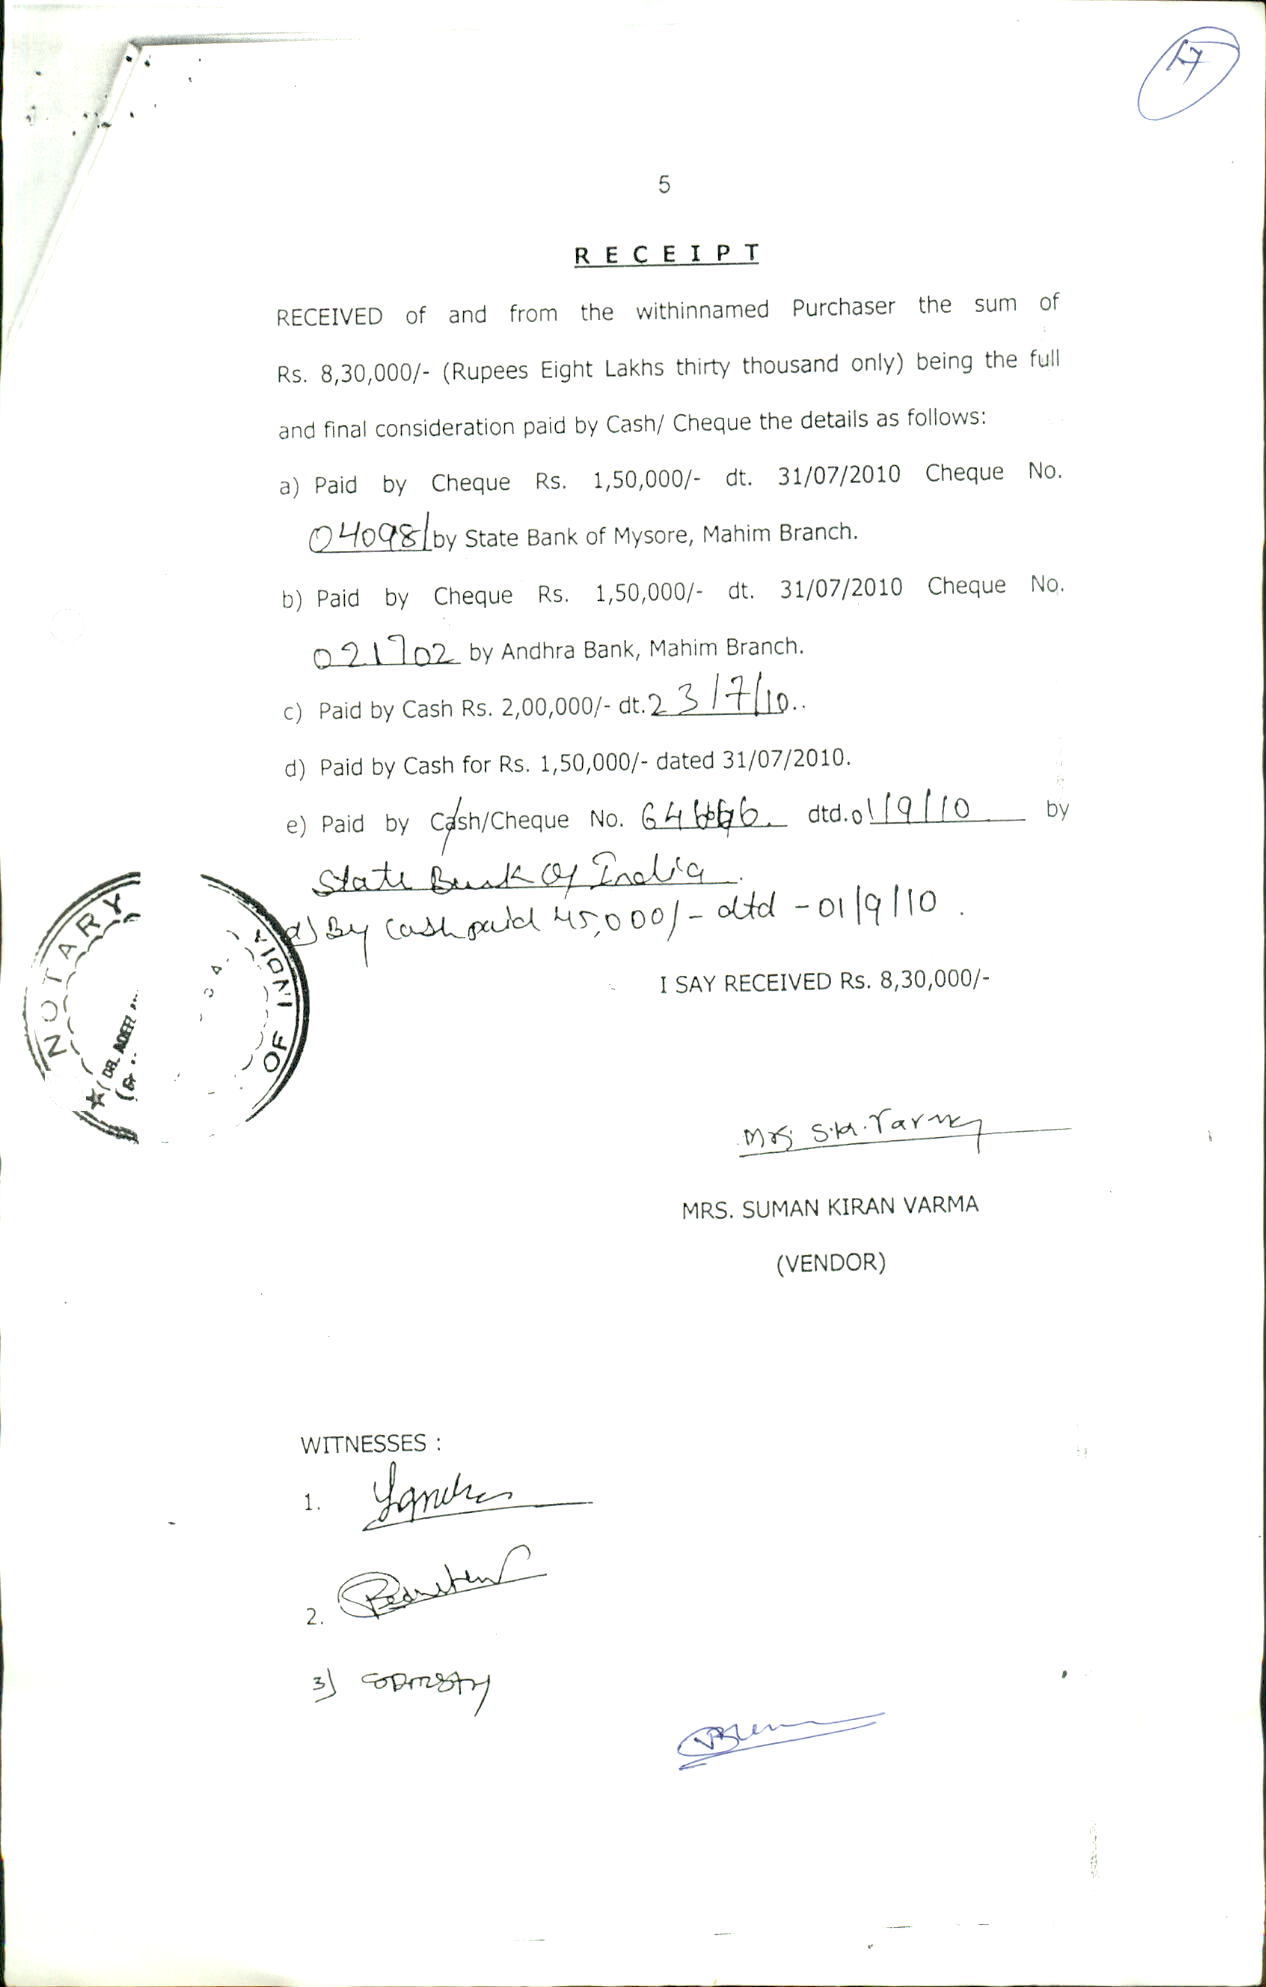 17
5
RECEIPT
RECEIVED of and from the withinnamed Purchaser the sum of
Rs. 8,30,000/- (Rupees Eight Lakhs thirty thousand only) being the full
and final consideration paid by Cash/ Cheque the details as follows:
a) Paid by Cheque Rs. 1,50,000/- dt. 31/07/2010 Cheque No.
04098/by State Bank of Mysore, Mahim Branch.
b) Paid by Cheque Rs. 1,50,000/- dt. 31/07/2010 Cheque No.
021702 by Andhra Bank, Mahim Branch.
c) Paid by Cash Rs. 2,00,000/- dt.23/7/10..
d) Paid by Cash for Rs. 1,50,000/- dated 31/07/2010.
e) Paid by Cash/Cheque No. dtd.01/9/10 by
State Bank Of India.
d) By Cash paid 45,000/- dtd - 01/9/10.
NOTARY
INDIA
OF
I SAY RECEIVED Rs. 8,30,000/-
Mrs. S.K. Varma
MRS. SUMAN KIRAN VARMA
(VENDOR)
WITNESSES :
1.
2.
3)